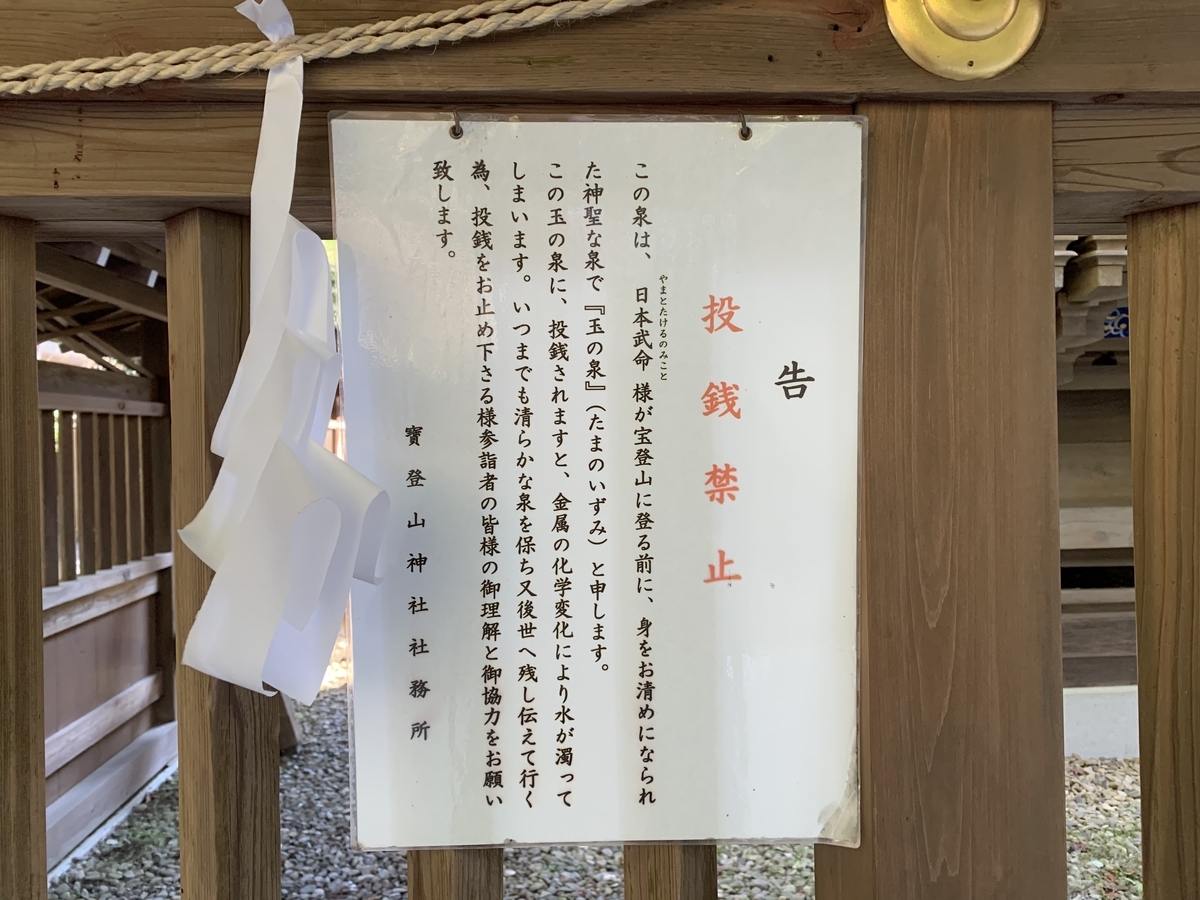 告
投銭禁止
この泉は、日本武命様が宝登山に登る前に、身をお清めになられ
やまとたけるのみこと
た神聖な泉で『玉の泉』(たまのいずみ)と申します。
この玉の泉に、投銭されますと、金属の化学変化により水が濁って
しまいます。いつまでも清らかな泉を保ち又後世へ残し伝えて行く
為、投銭をお止め下さる様参詣者の皆様の御理解と御協力をお願い
致します。
寳登山神社社務所